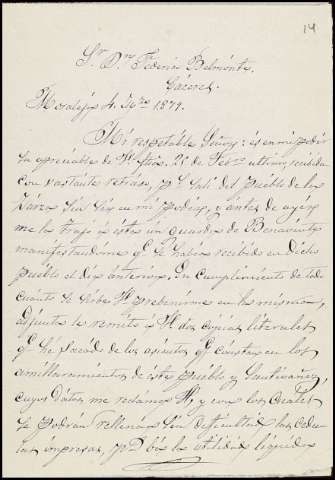 14
Sr. Dn. Federico Belmonte.
Cáceres.
Moraleja 4, 1879.
Mi respetable Señor: es en mi poder
la apreciable de V. 21 de Feb.ro ultimo, recibida
con vastante retraso, p.r salí del pueblo de los
sin en mi poder, y antes de ayer
me la trajo á este un criado de Benavente
manifestandome q.e la habia recibido en dicho
pueblo el dia anterior. En cumplimiento de todo
cuanto se sirbe V. prebenirme en la misma,
adjunto le remito á V. dos copias literales
q.e hé sacado de los asientos q.e constan en los
amillaramientos de este pueblo y Santivañez,
cuyos datos me reclama V, y con los cuales
se podran rellenar sin dificultad las cedu-
las impresas, p.s las utilidades liquidas